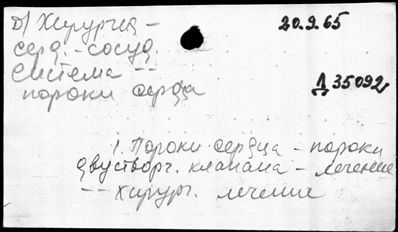 д) Хирургия -
серд. - сосуд.
система --
пороки сердца
20.9.65
Д 35092
1. Пороки сердца - пороки
двустворч. клапана - лечение
-- хирург. лечение